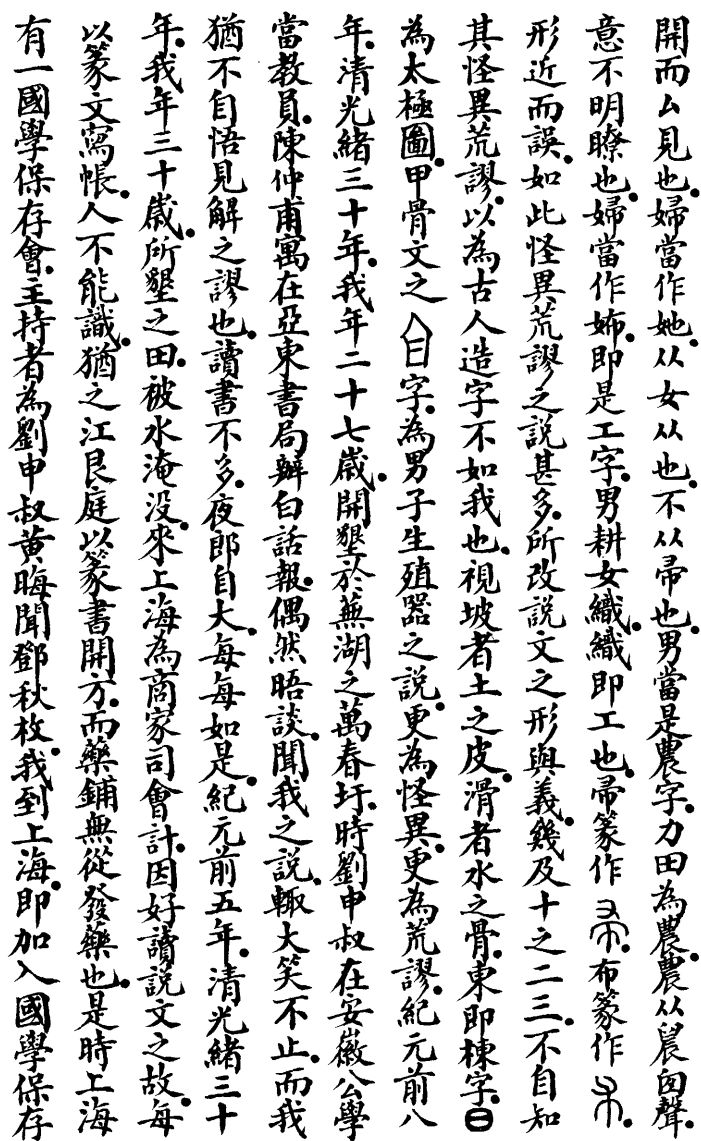 開而厶見也。婦當作她。从女从也。不从帚也。男當是農字。力田為農。農从晨囱聲。
意不明瞭也。婦當作㛍。即是工字。男耕女織。織即工也。帚篆作。布篆作。
形近而誤。如此怪異荒謬之說甚多。所改說文之形與義。幾及十之二三。不自知
其怪異荒謬。以為古人造字不如我也。視坡者土之皮。滑者水之骨。東即棟字。日
為太極圖。甲骨文之字。為男子生殖器之說。更為怪異。更為荒謬。紀元前八
年。清光緒三十年。我年二十七歲。開墾於蕪湖之萬春圩。時劉申叔在安徽公學
當教員。陳仲甫寓在亞東書局辦白話報。偶然晤談。聞我之說。輒大笑不止。而我
猶不自悟見解之謬也。讀書不多。夜郎自大。每每如是。紀元前五年。清光緒三十
年。我年三十歲。所墾之田。被水淹没。來上海為商家司會計。因好讀說文之故。每
以篆文寫帳。人不能識。猶之江艮庭以篆書開方。而藥鋪無從發藥也。是時上海
有一國學保存會。主持者為劉申叔黃晦聞鄧秋枚。我到上海。即加入國學保存